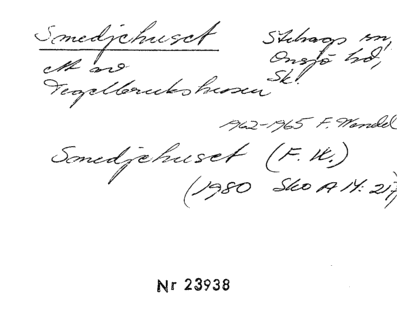 Smedjehuset
Stehags sn,
Onsjö hd,
Sk.
ett av
Tegelbrukshusen
1962-1965 F. Wendel
Smedjehuset (F. K.)
(1980 Sko A M: 217)
Nr 23938